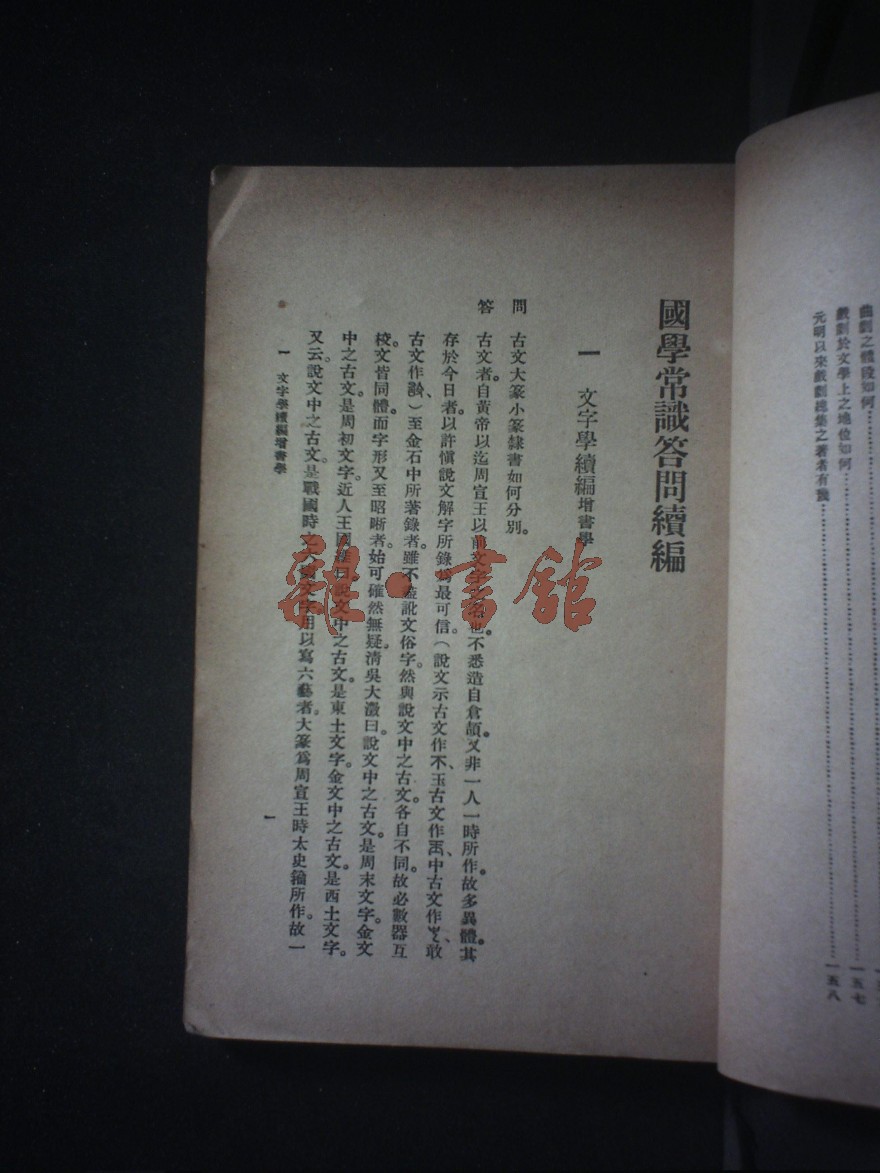 曲劇之體段如何……
戲劇於文學上之地位如何……一五七
元明以來戲劇總集之著者有幾……一五八
國學常識答問續編
一 文字學續編增書學
問 古文大篆小篆隸書如何分別。
答 古文者。自黃帝以迄周宣王以前文字之也。不悉造自倉頡。又非一人一時所作。故多異體。其
存於今日者。以許愼說文解字所錄爲最可信。(說文示古文作、玉古文作、中古文作、敢
古文作)至金石中所著錄者。雖不盡訛文俗字。然與說文中之古文。各自不同。故必數器互
校。文皆同體。而字形又至昭晰者。始可確然無疑。淸吳大澂曰。說文中之古文。是周末文字。金文
中之古文。是周初文字。近人王國維曰。說文中之古文。是東土文字。金文中之古文。是西土文字。
又云。說文中之古文。是戰國時文字。用以寫六藝者。大篆爲周宣王時太史籀所作。故一
一 文字學續編增書學
一
雜·書館